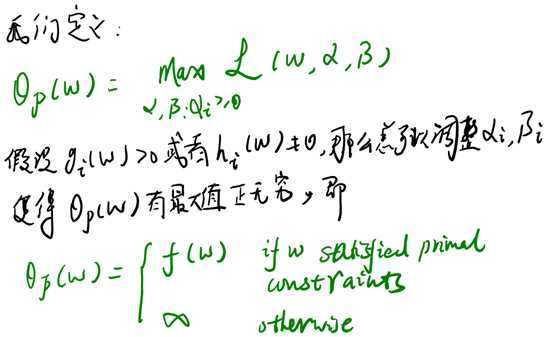 我们定义:
θ_p(w) = max_{α,β:α_i≥0} L(w,α,β)
假设 g_i(w)>0 或者 h_i(w)≠0, 那么总可以调整 α_i, β_i
使得 θ_p(w) 有最大值正无穷, 即
θ_p(w) = { f(w) if w satisfied primal constraints
∞ otherwise